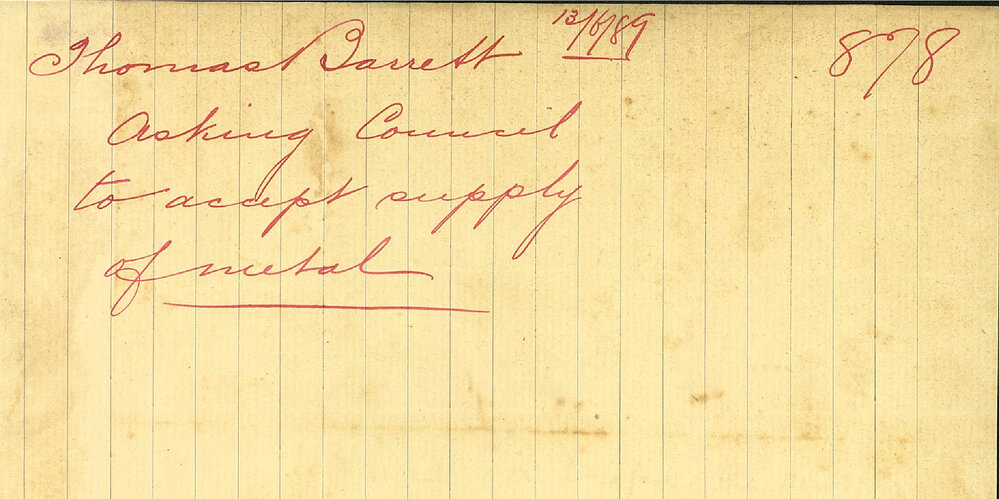 Thomas Barrett 13/6/89 878
Asking Council
to accept supply
of metal